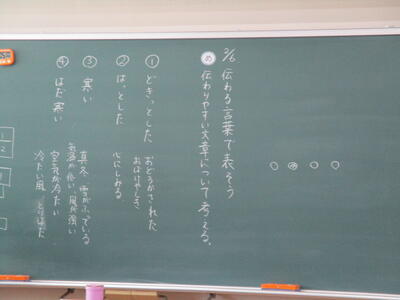 2/6 伝わる言葉で表そう
め 伝わりやすい文章について考える。
① どきっとした おどろかされた
おばけやしき
② はっとした 心にしみる
③ 寒い 真冬 雪がふっている
気温が低い 風が強い
④ はだ寒い 空気が冷たい
冷たい風 とりはだ
1
2